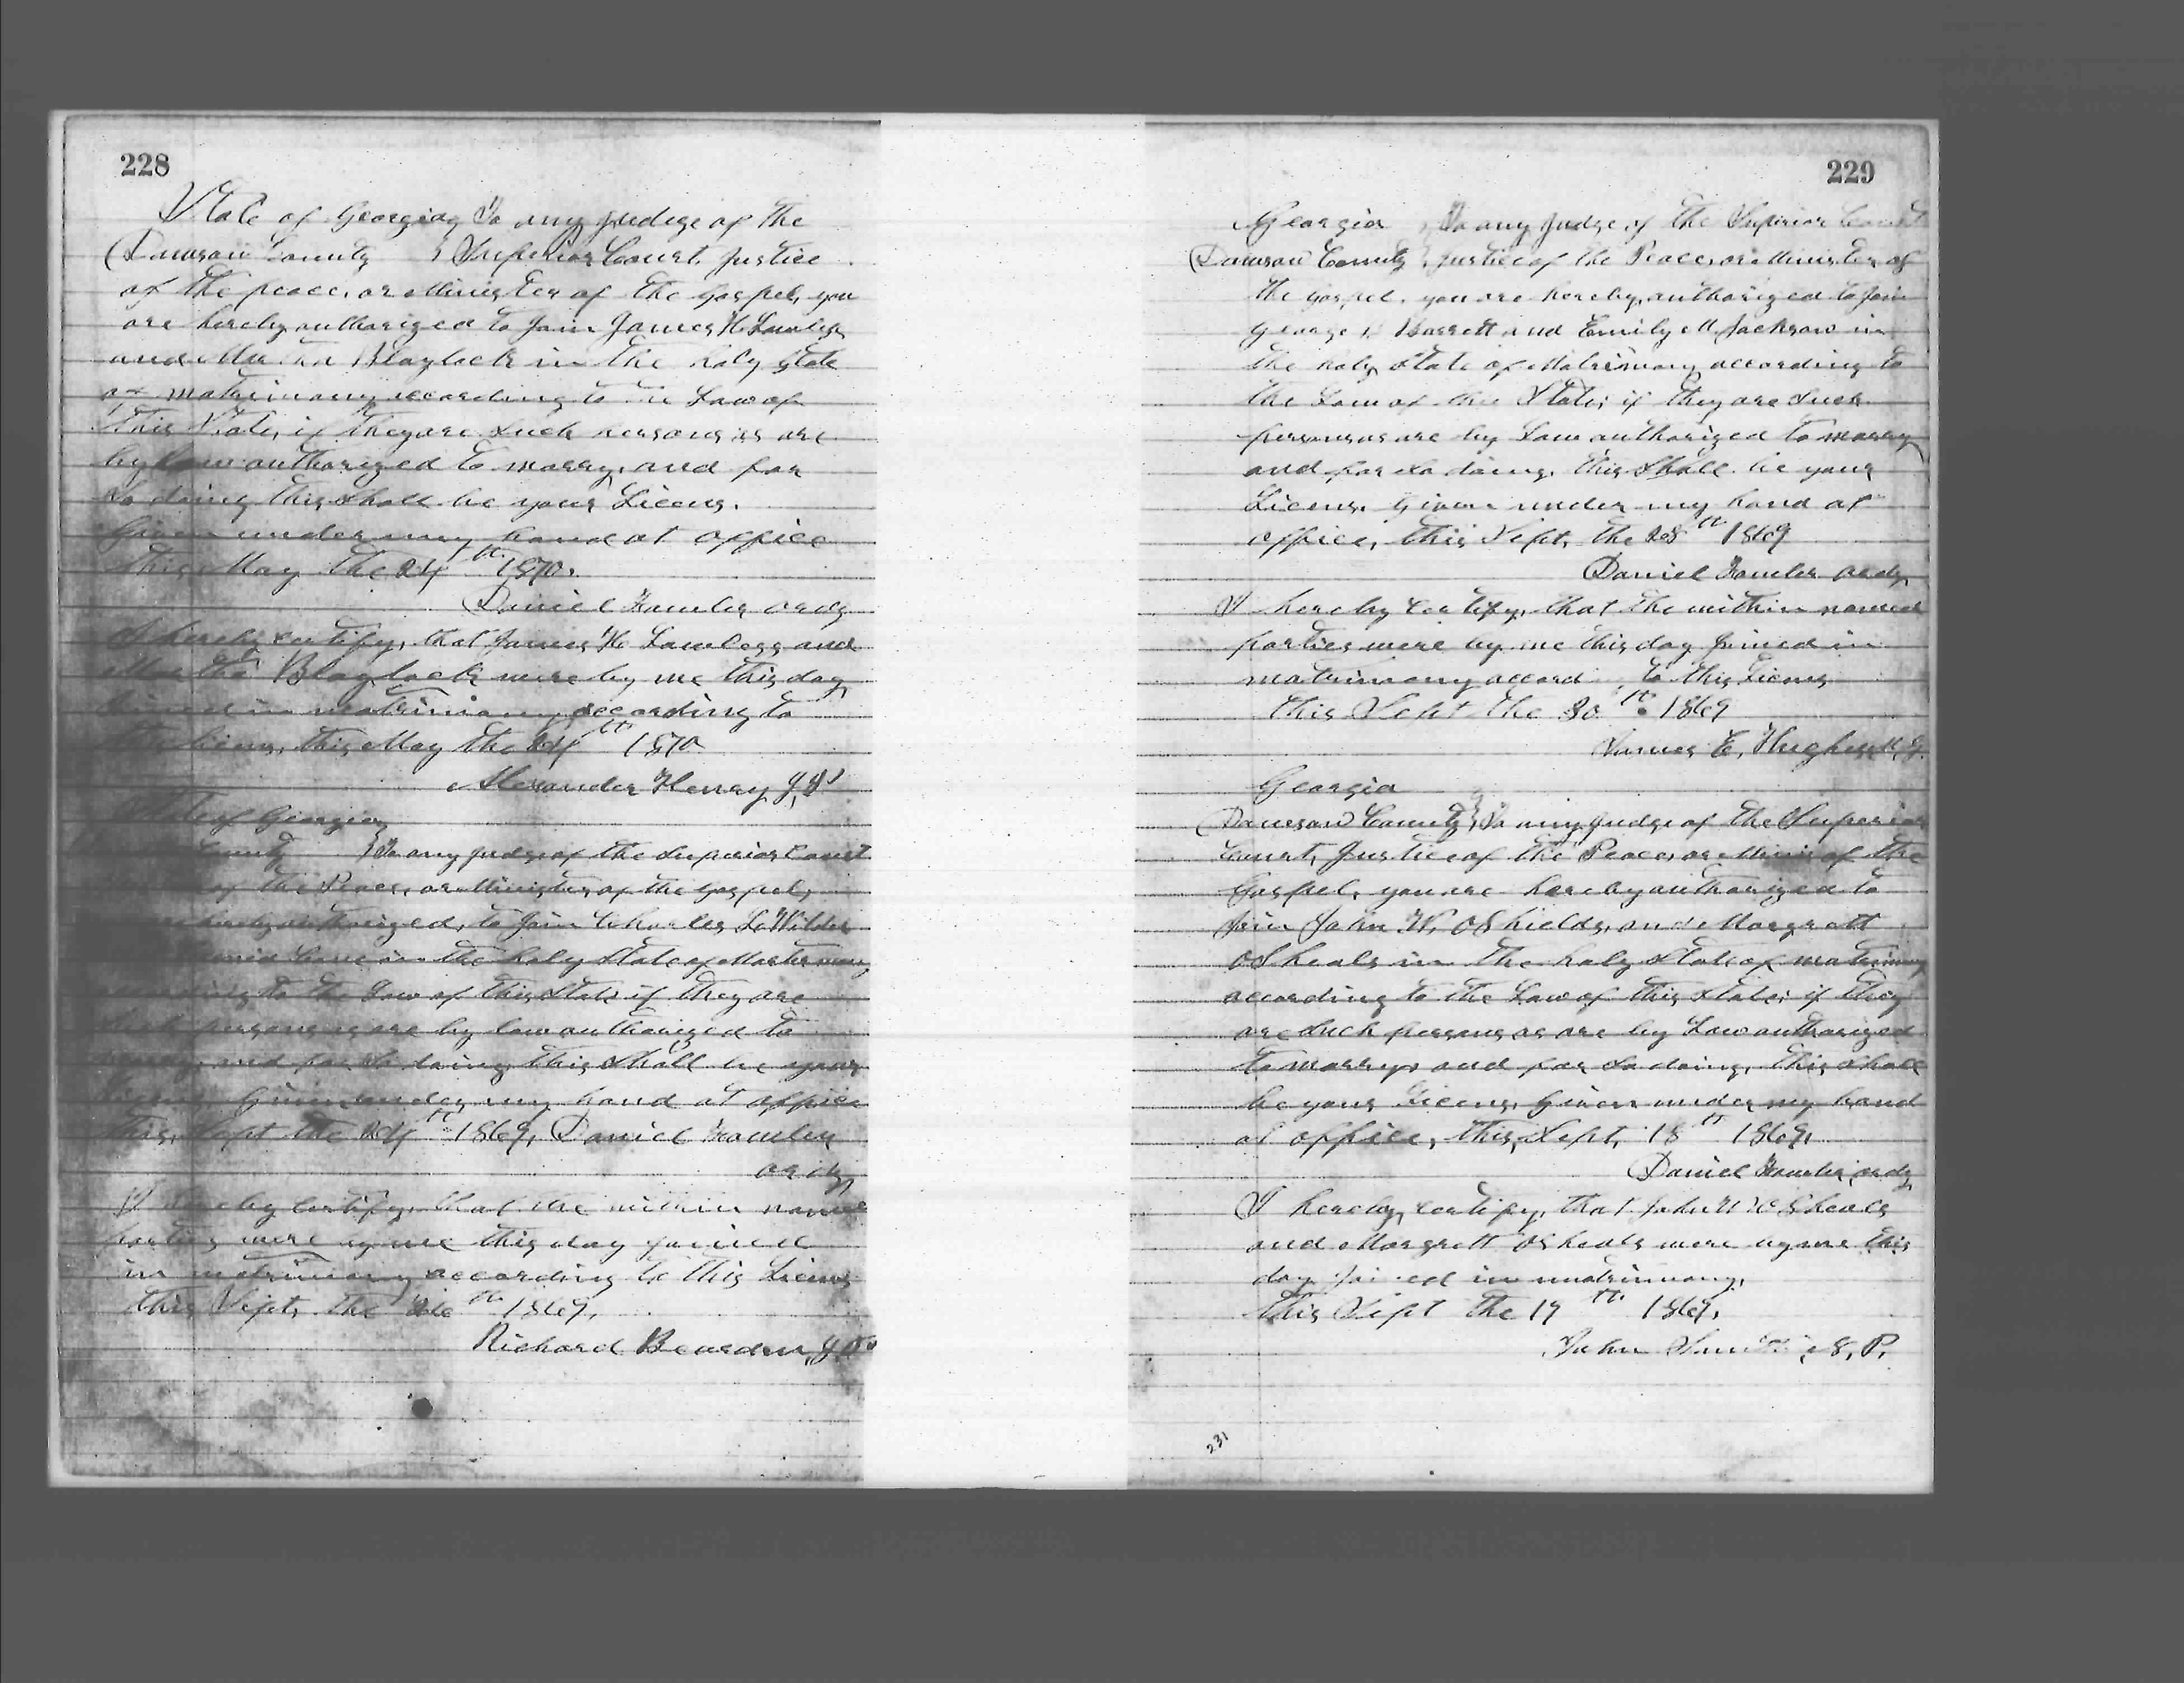 228
State of Georgia, To any judge of the
Dawson County } Superior Court, Justice
of the peace, or Minister of the Gospel, you
are hereby authorized to Join James H. Lawless
and Blaylock in the holy State
of matrimony according to the Law of
This State, if they are such persons as are
by Law authorized to marry, and for
So doing this shall be your Licens.
Given under my hand at office
This May the 24th 1870.
Daniel Fowler ordy
I hereby certify, that James H Lawless and
Martha Blaylock were by me this day
joined in matrimony according to
Licens, this May the 24th 1870
Alexander Henry J,P
State of Georgia
County } To any judge of the Superior Court
of the Peace, or Minister, of the Gospel,
hereby authorized, to Join Charles L. Wilder
in the holy State of
to the Law of this State if they are
such persons as are by law authorized to
marry, and for So doing this shall be your
Licens, Given under my hand at office
this, Sept the 24th 1869, Daniel Fowler
ordy
I hereby certify, that the within named
parties were by me this day joined
in matrimony according to this Licens
this Sept. the 26th 1869.
Richard Bearden, J,P
229
Georgia } To any Judge of the Superior Court
Dawson County } Justice of the Peace, or Minister of
the Gospel. you are hereby, authorized to Join
George Barrett and Emily M. Jackson in
the holy State of Matrimony according to
the Law of this State; if they are such
persons as are by Law authorized to marry
and for So doing, this Shall be your
Licens. Given under my hand at
office, this Sept, the 28th 1869
Daniel Fowler ordy,
I hereby Certify, that the within named
parties were by me this day Joined in
matrimony accord to this Licens
this Sept the 30th 1869
James E, Hughes, M, G.
Georgia
Dawson County } To any Judge of the Superior
Court, Justice of the Peace, or Minis of the
Gospel, you are hereby authorized to
Join John W, OShields, and Margrett
OSheals in the holy State of matrimony
according to the Law of this State; if they
are Such persons as are by Law authorized
to marry, and for So doing, this Shall
be your Licens, Given under my hand
at office, this, Sept, 18th 1869.
Daniel Fowler, ordy
I hereby, certify, that John W OSheals
and Margrett OSheals were by me this
day joined in matrimony,
this Sept the 19th 1869.
John P.
231